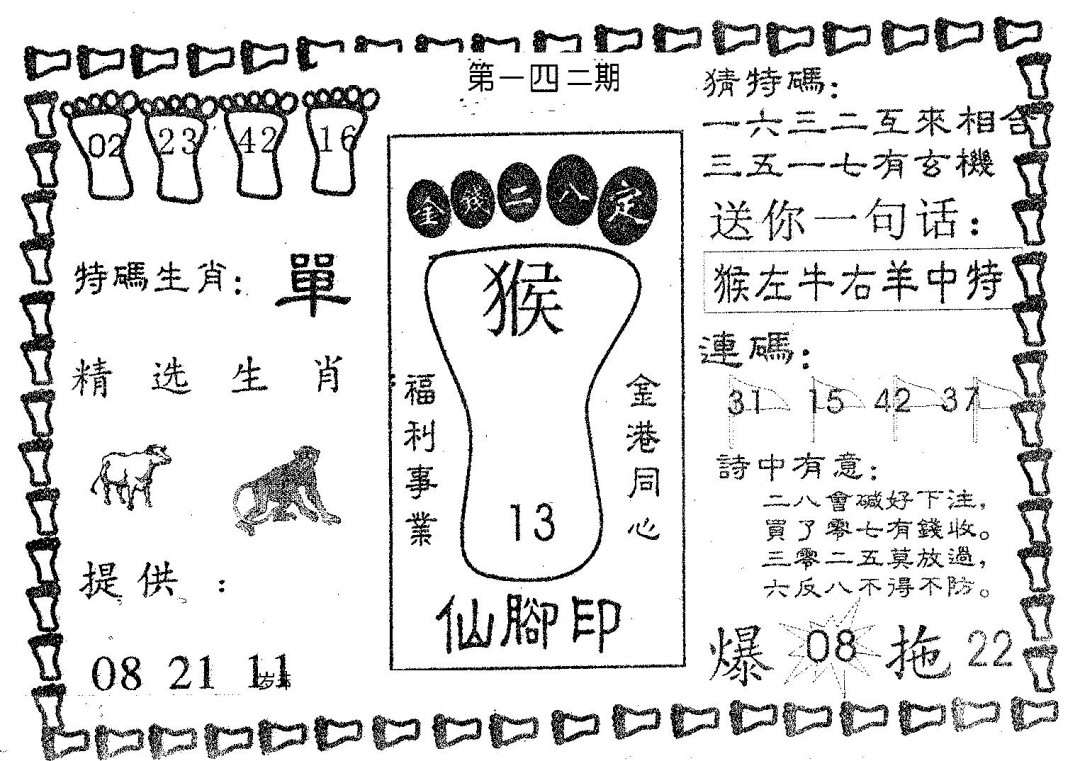 第一四二期
02 23 42 16
特碼生肖： 單
精选生肖
提供：
08 21 11
金錢二八定
猴
福利事業
金港同心
13
仙腳印
猜特碼：
一六三二互來相合
三五一七有玄機
送你一句话：
猴左牛右羊中特
連碼：
31 15 42 37
詩中有意：
二八會碱好下注，
買了零七有錢收。
三零二五莫放過，
六反八不得不防。
爆 08 拖 22